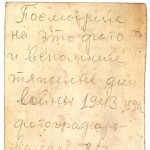 Посмотрите
на это фото
и вспомните
тяжелые дни
войны 1943 года
фотографиро-